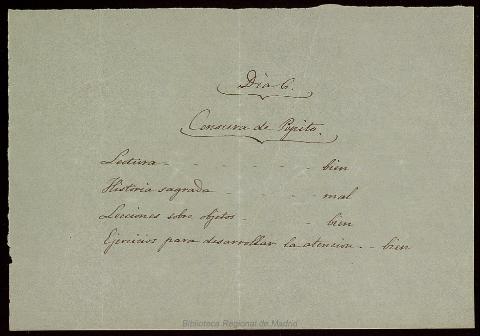 Dia 6.
Censura de Pepito.
Lectura - - - - - - bien
Historia sagrada - - - - mal
Lecciones sobre objetos - - - bien
Ejercicios para desarrollar la atencion - - bien
Biblioteca Regional de Madrid